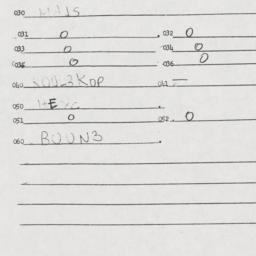 030 MAIS
031 0 032 0
033 0 034 0
035 0 036 0
040 041 —
050
051 0 052 0
060 BOUN3